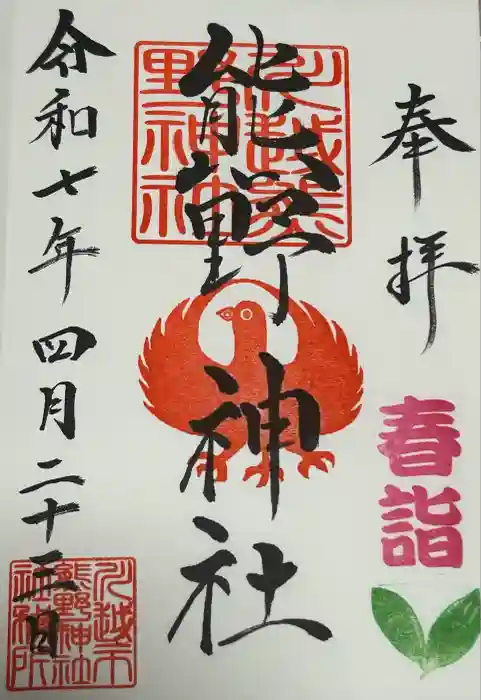 奉拝
春詣
熊野神社
川越熊野神社
令和七年四月二十三日
川越市熊野神社社務所